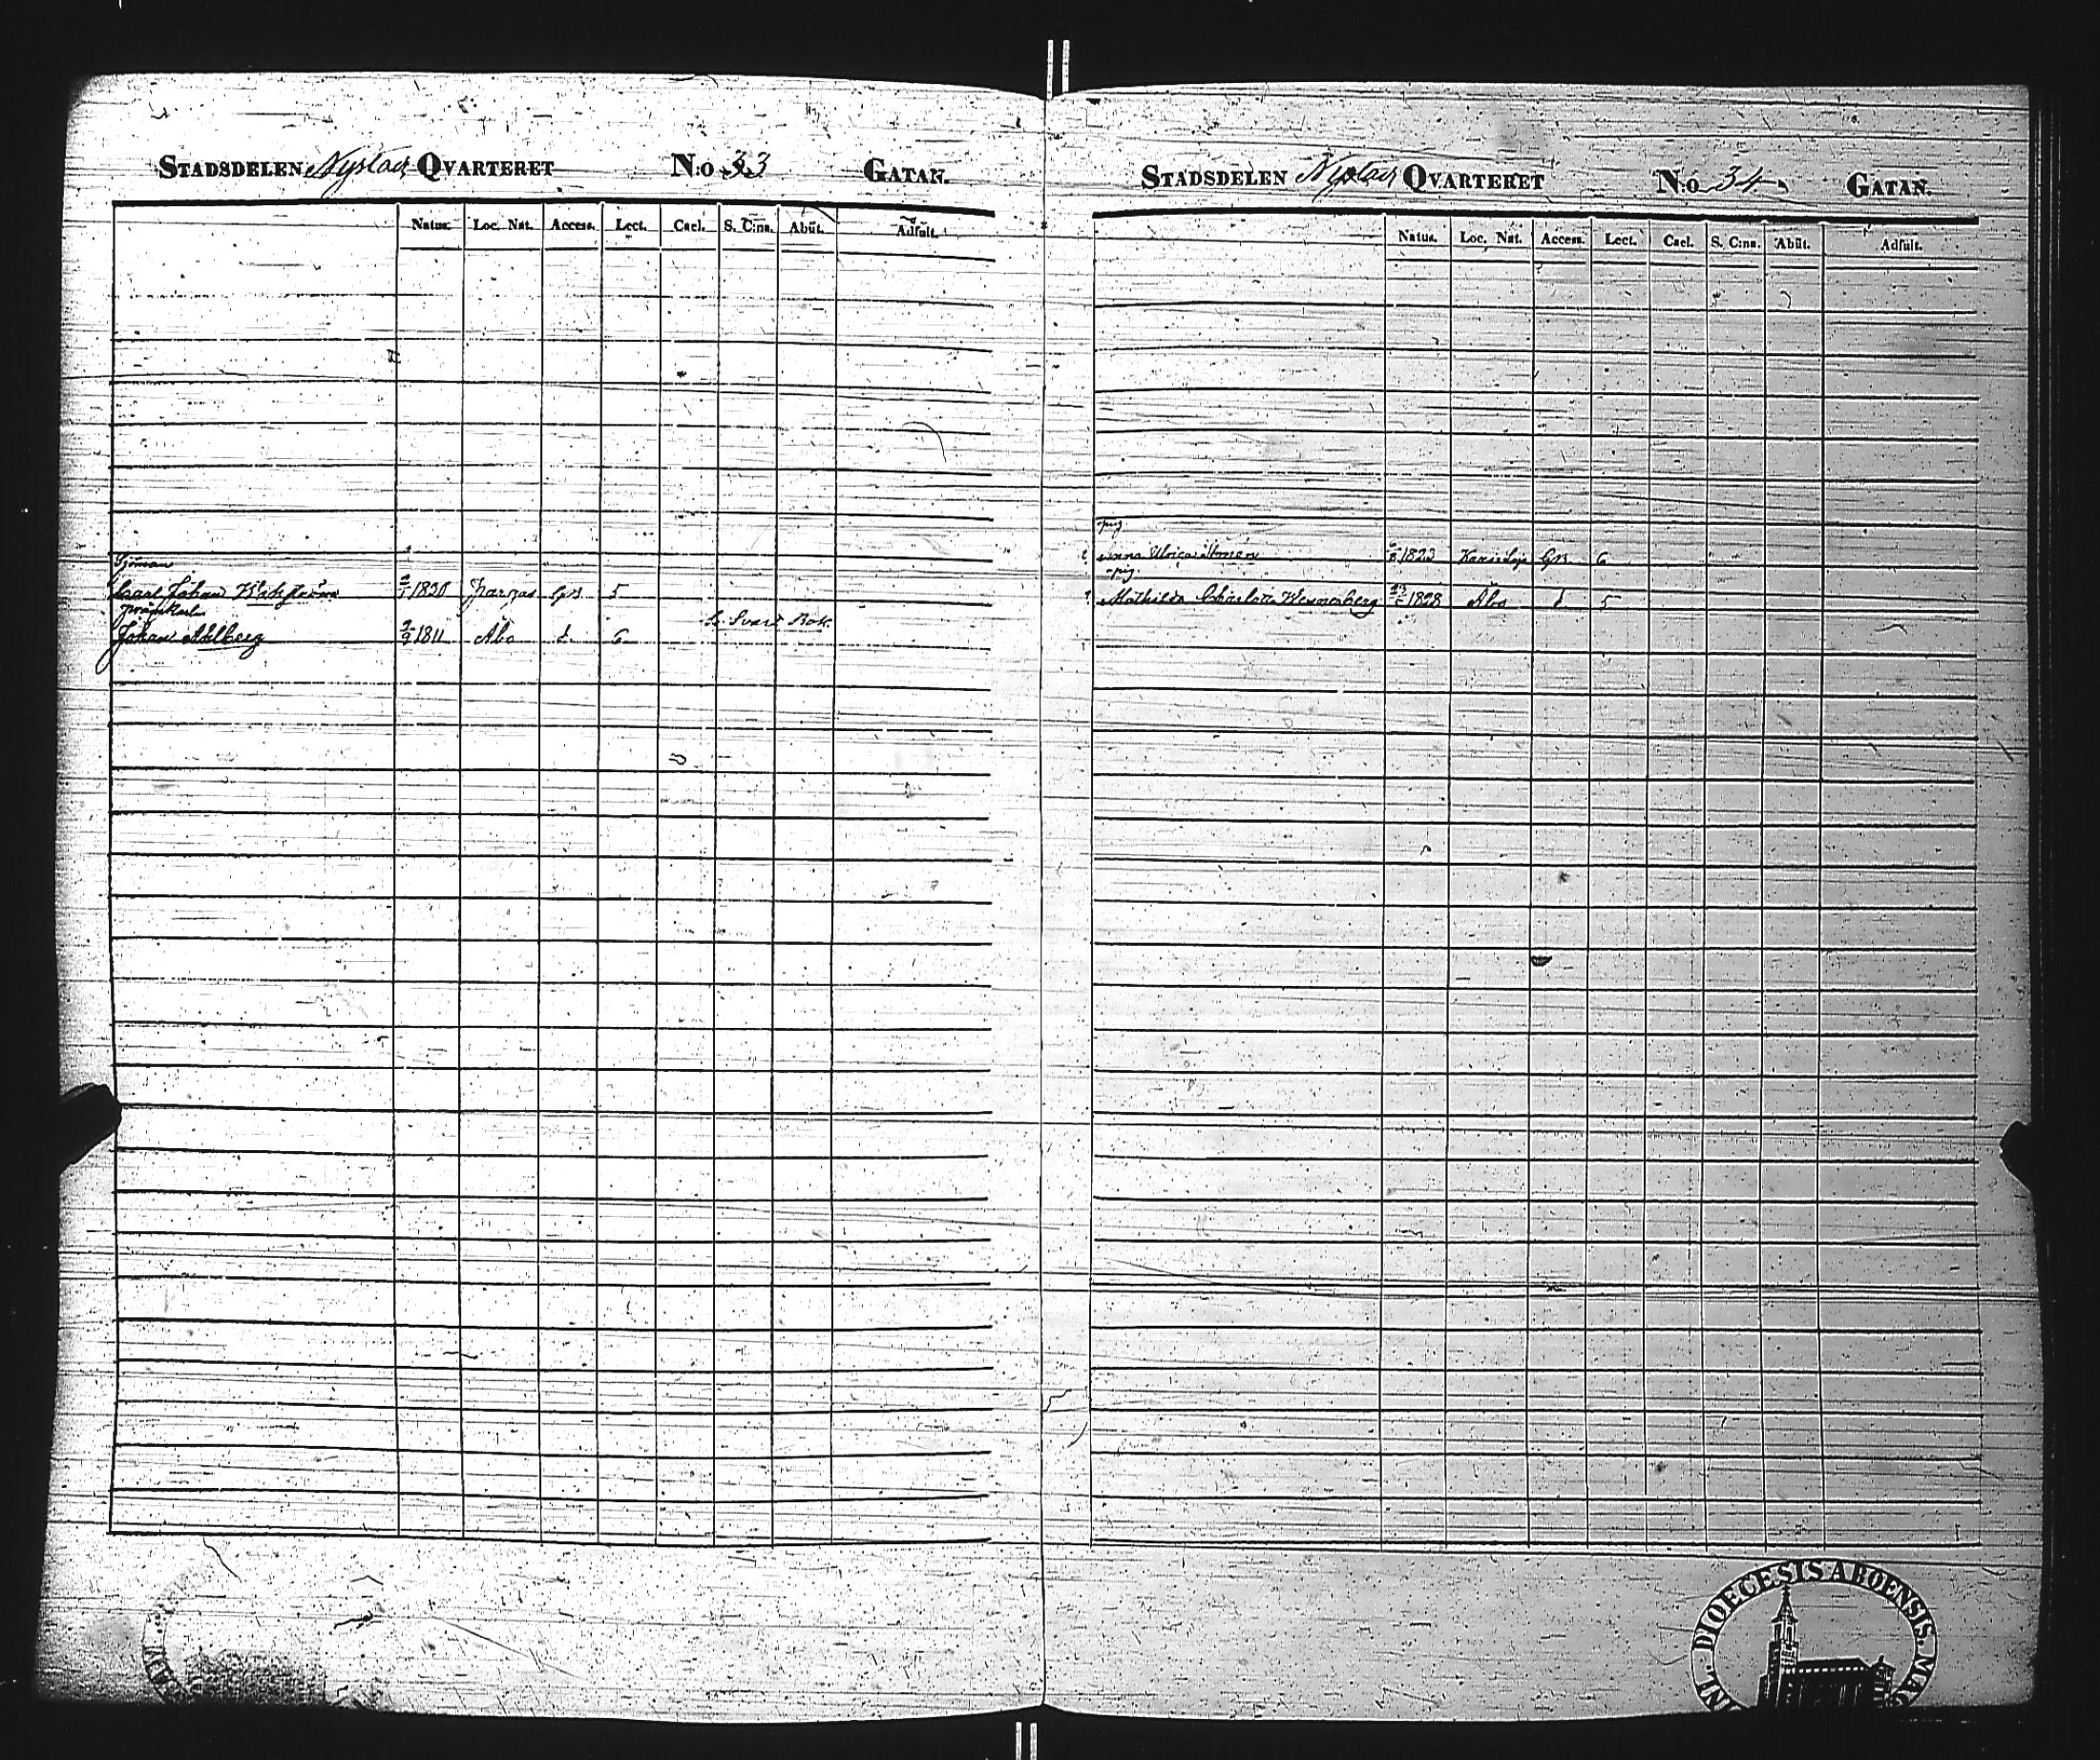 STADSDELEN Nystad QVARTERET N:o 33 GATAN.
Natus. Loc. Nat. Access. Lect. Cacl. S. C:na. Abiit. Adfuit.
Sjöman
Carl Johan 1820 Pargas 5
Johan Ahlberg 1811 Åbo d. 6 Svart Bok.
STADSDELEN Nystad QVARTERET N:o 34 GATAN.
Natus. Loc. Nat. Access. Lect. Cacl. S. C:na. Abiit. Adfuit.
pig.
Anna Ulrica 1823 6
pig.
Mathilda Charlotta Wennerberg 1828 Åbo d 5
DIOECESIS ABOENSIS.